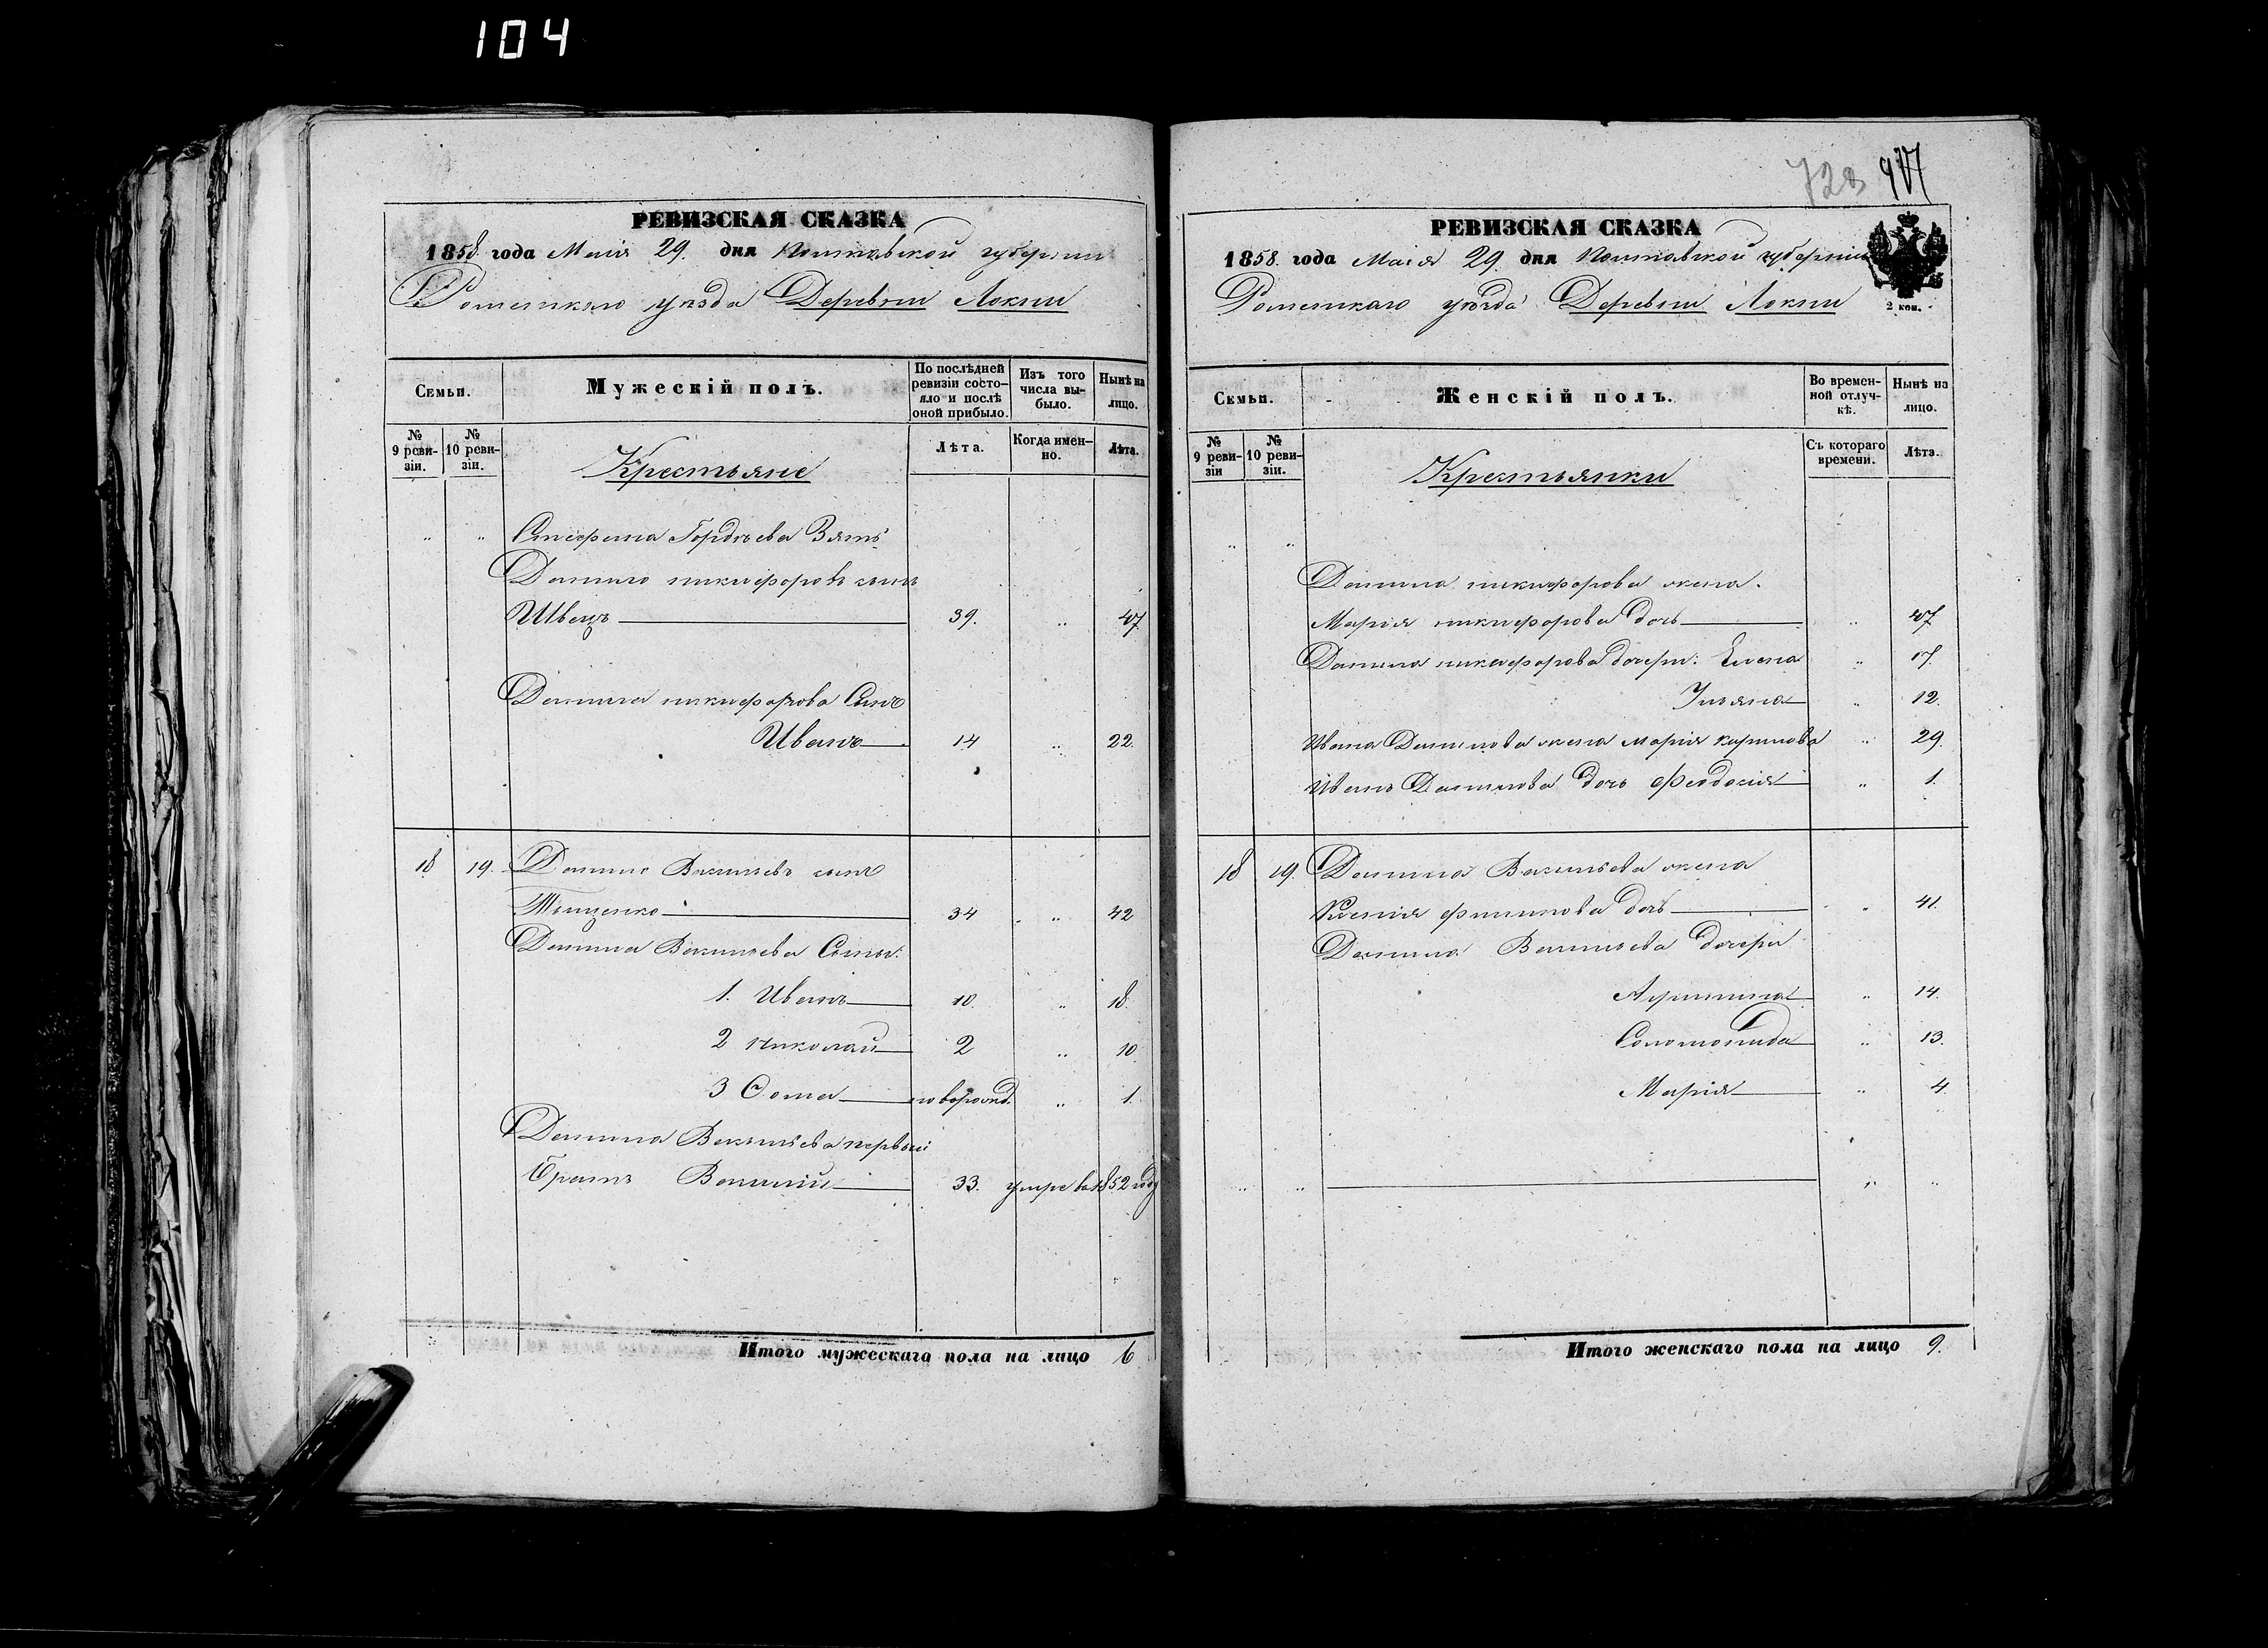 104
РЕВИЗСКАЯ СКАЗКА
1858 года Маія 29. дня Полтавской губерніи
Роменскаго уѣзда Деревни Локни
Семьи.
Мужескій полъ.
По послѣдней ревизіи состо-
яло и послѣ
оной прибыло.
Изъ того
числа вы-
было.
Нынѣ на
лицо.
№
9 реви-
зіи.
№
10 реви-
зіи.
Крестьяне
Лѣта.
Когда имен-
но.
Лѣта.
" " Гордѣева Зять
Данило никифоровъ сынъ
Швецъ 39. " 47
Данила никифорова Сынъ
Иванъ 14 " 22.
18 19. Данило Васильевъ сынъ
Тыщенко 34 " 42
Данила Васильева Сыны:
1. Иванъ 10. " 18.
2 Николай 2 " 10
3 Ѳома новорожд. " 1.
Данила Васильева первый
Братъ Василій 33. умре въ 1852 году
Итого мужескаго пола на лицо 6
728
РЕВИЗСКАЯ СКАЗКА
1858. года Маія 29. дня Полтавской губерніи
Роменскаго уѣзда Деревни Локни
2 коп.
Семьи.
Женскій полъ.
Во времен-
ной отлуч-
кѣ.
Нынѣ на
лицо.
№
9 реви-
зіи
№
10 реви-
зіи.
Крестьянки
Съ котораго
времени.
Лѣта.
" "
Данила никифорова жена.
Марія никифорова дочь " 47
Данила никифорова дочери: Елена " 17.
Ульяна " 12.
Ивана Данилова жена марія карпнова " 29.
Ивана Данилова дочь Феодосія " 1.
18 19. Данила Васильева жена
Ксенія филипова дочь " 41.
Данила Васильева дочери
" 14.
Соломонида " 13.
Марія " 4
" " " "
Итого женскаго пола на лицо 9.